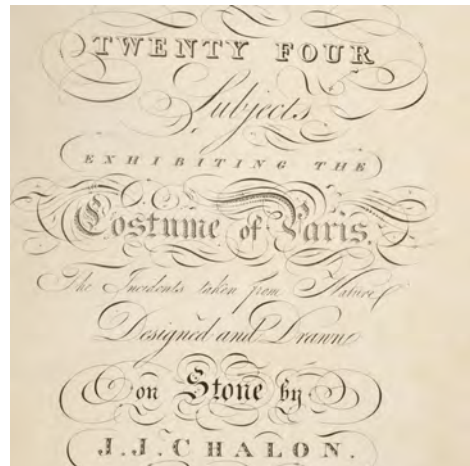 TWENTY FOUR
Subjects
EXHIBITING THE
Costume of Paris.
The Incidents taken from Nature
Designed and Drawn
on Stone by
J.J.CHALON.